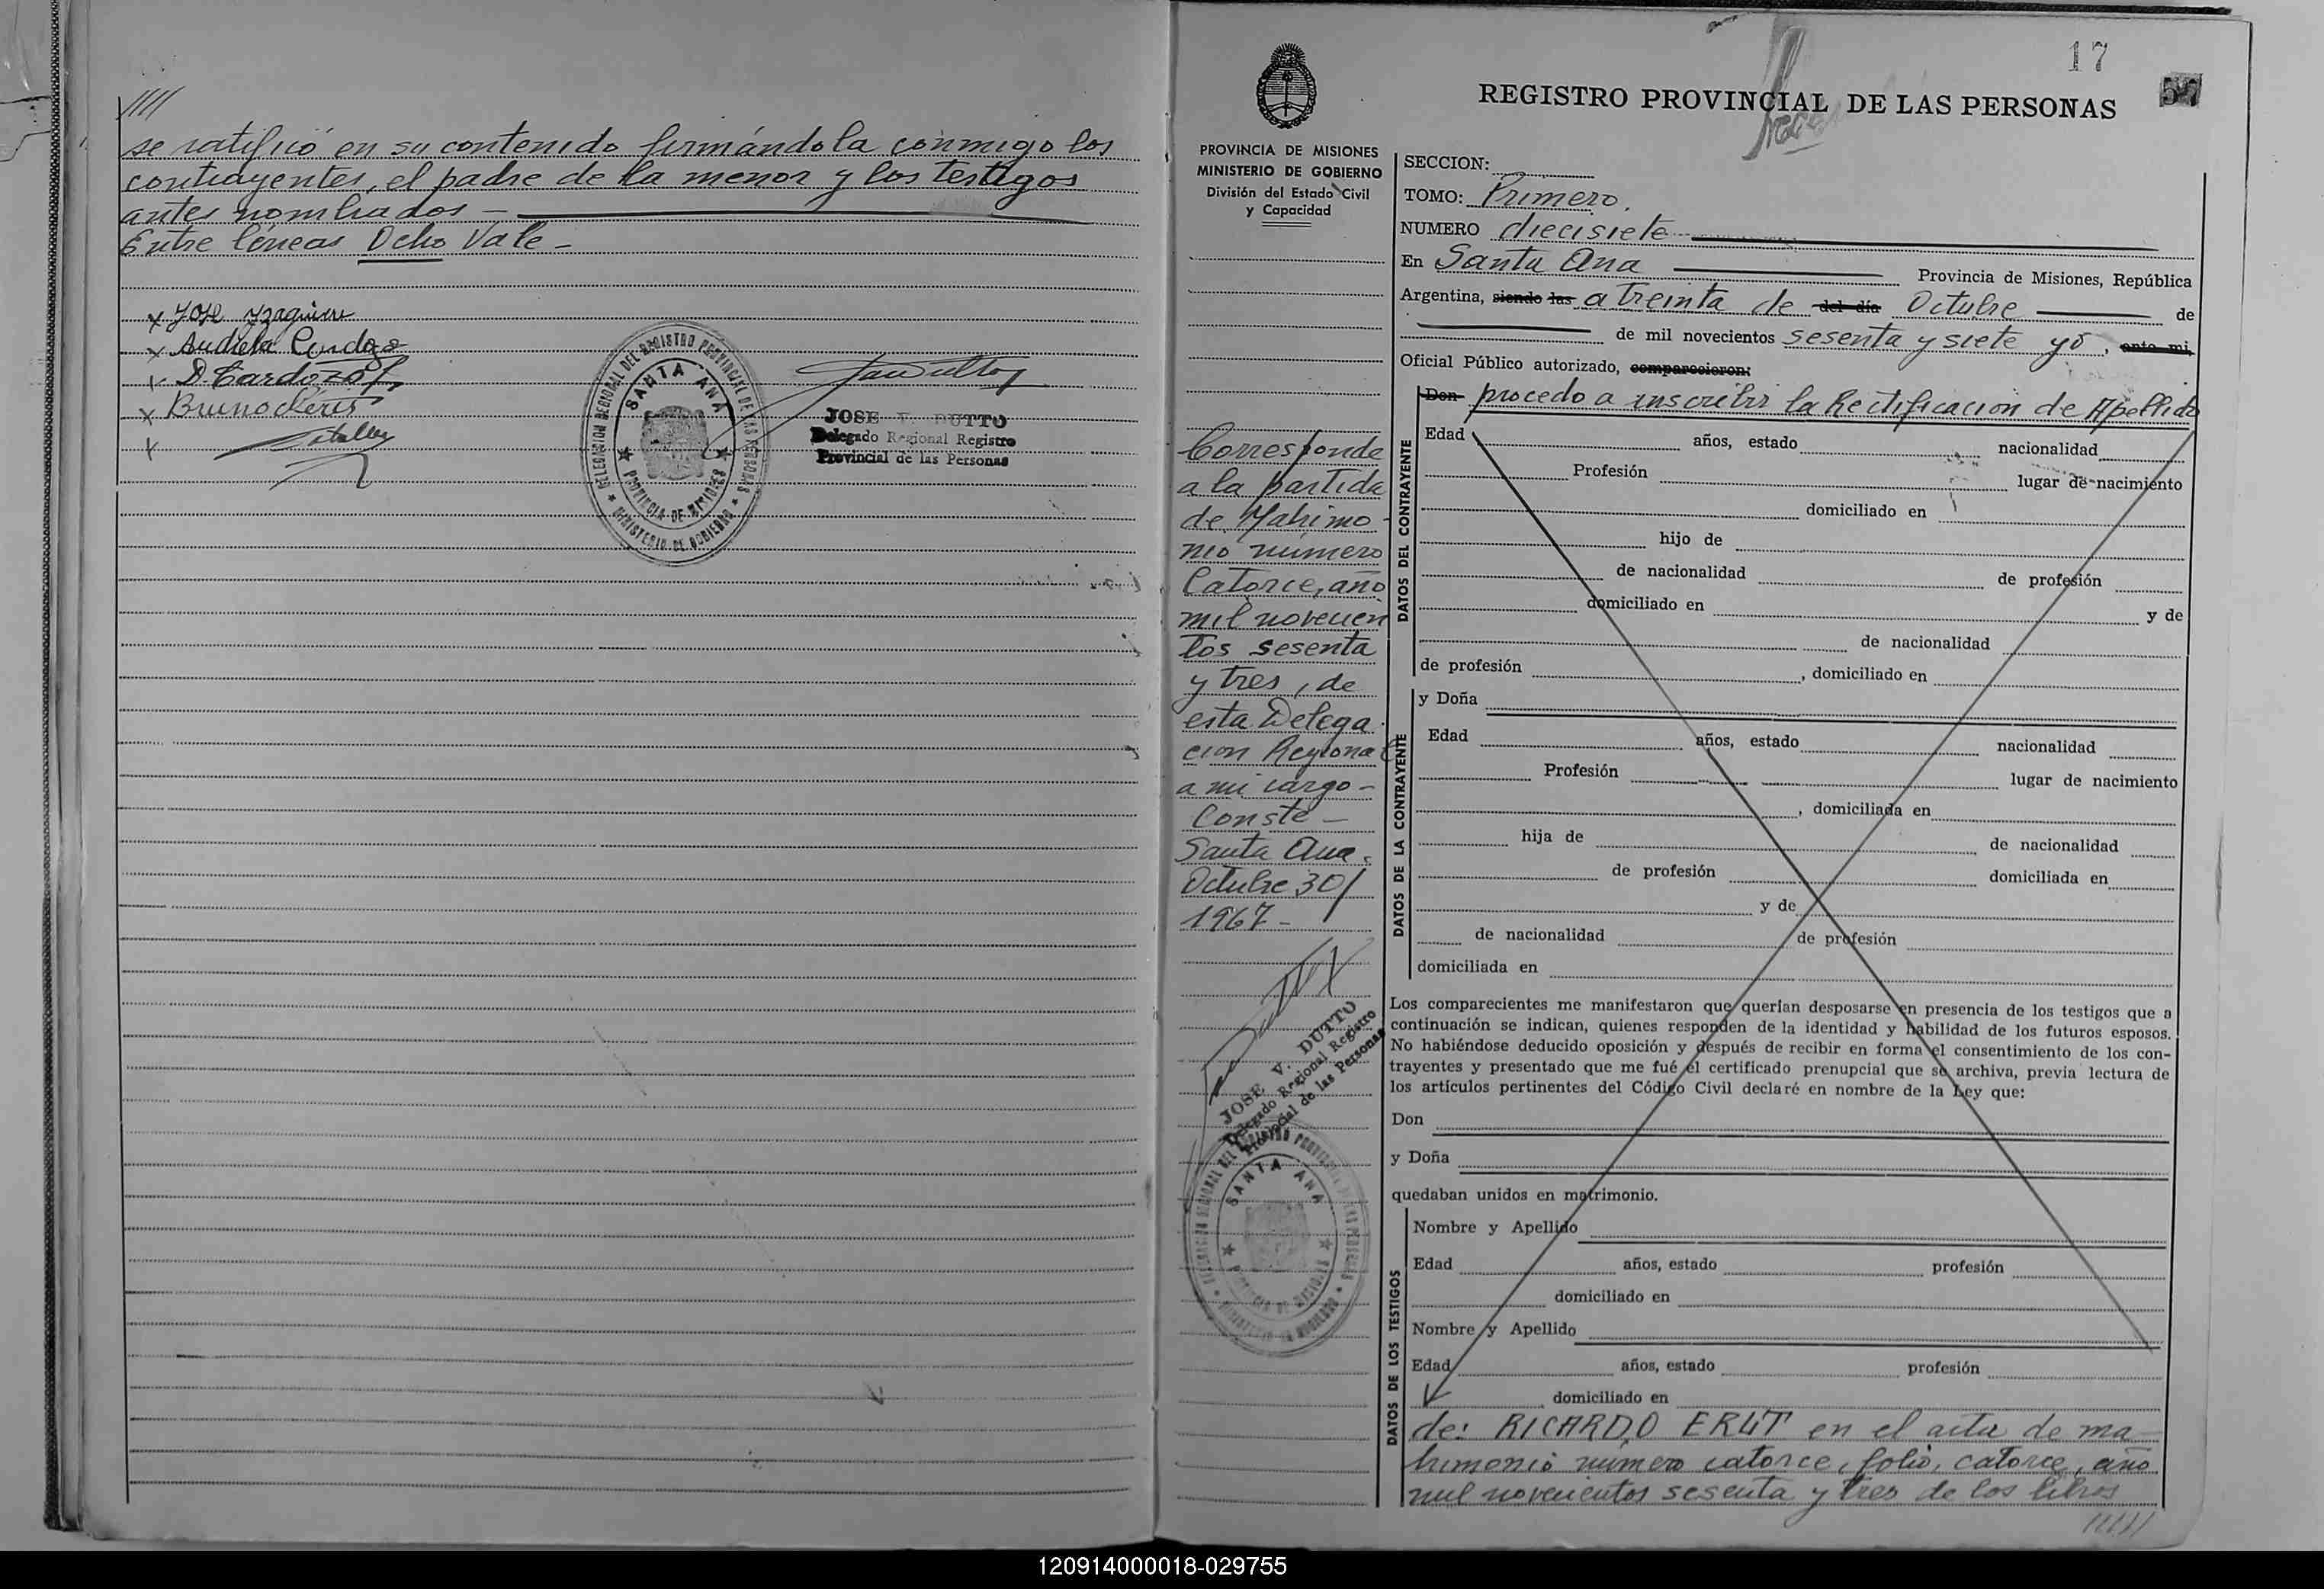 ////
se ratificó en su contenido firmándola conmigo los
contrayentes, el padre de la menor y los testigos
antes nombrados —
Entre líneas Ocho Vale —
x José Yzaguirre
x Audelia Cardozo
D. Cardozo
x Bruno
x
DELEGACION REGIONAL DEL REGISTRO PROVINCIAL DE LAS PERSONAS
SANTA ANA
PROVINCIA DE MISIONES
MINISTERIO DE GOBIERNO
JOSE V. DUTTO
Delegado Regional Registro
Provincial de las Personas
17
57
REGISTRO PROVINCIAL DE LAS PERSONAS
PROVINCIA DE MISIONES
MINISTERIO DE GOBIERNO
División del Estado Civil
y Capacidad
Corresponde
a la partida
de Matrimo-
nio número
Catorce, año
mil novecien
tos sesenta
y tres, de
esta Delega
cion Regional
a mi cargo -
Conste -
Santa Ana.
Octubre 30/
1967 -
JOSE V. DUTTO
Delegado Regional Registro
Provincial de las Personas
DELEGACION REGIONAL DEL REGISTRO PROVINCIAL DE LAS PERSONAS
SANTA ANA
PROVINCIA DE MISIONES
MINISTERIO DE GOBIERNO
SECCION:
TOMO: Primero.
NUMERO diecisiete
En Santa Ana Provincia de Misiones, República
Argentina, siendo las a treinta de del día Octubre de
de mil novecientos sesenta y siete yo, ante mi,
Oficial Público autorizado, comparecieron:
Don procedo a inscribir la Rectificacion de Apellido
DATOS DEL CONTRAYENTE
Edad años, estado nacionalidad
Profesión lugar de nacimiento
domiciliado en
hijo de
de nacionalidad de profesión
domiciliado en y de
de nacionalidad
de profesión , domiciliado en
DATOS DE LA CONTRAYENTE
y Doña
Edad años, estado nacionalidad
Profesión lugar de nacimiento
, domiciliada en
hija de de nacionalidad
de profesión domiciliada en
y de
de nacionalidad de profesión
domiciliada en
Los comparecientes me manifestaron que querían desposarse en presencia de los testigos que a
continuación se indican, quienes responden de la identidad y habilidad de los futuros esposos.
No habiéndose deducido oposición y después de recibir en forma el consentimiento de los con-
trayentes y presentado que me fué el certificado prenupcial que se archiva, previa lectura de
los artículos pertinentes del Código Civil declaré en nombre de la Ley que:
Don
y Doña
quedaban unidos en matrimonio.
DATOS DE LOS TESTIGOS
Nombre y Apellido
Edad años, estado profesión
domiciliado en
Nombre y Apellido
Edad años, estado profesión
domiciliado en
de: RICARDO ERUT en el acta de ma-
trimonio número catorce, folio, catorce, año
mil novecientos sesenta y tres de los libros
/////
120914000018-029755